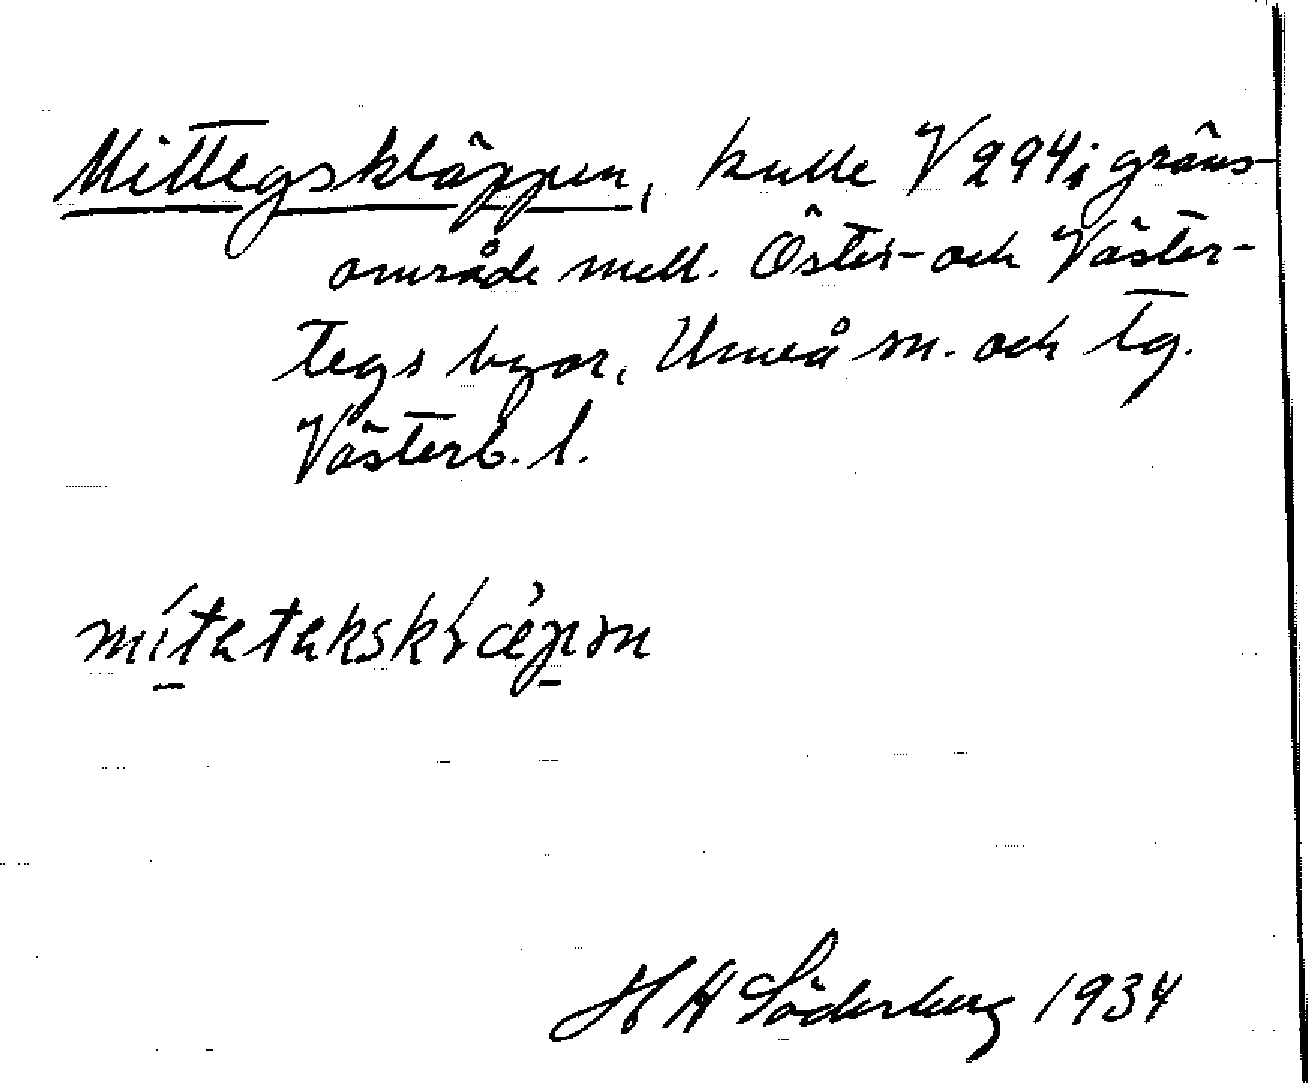 Mittegskläppen, kulle V 294 i gräns-
område mell. Öster- och Väster-
tegs byar, Umeå sn. och tg.
Västerb. l.
H A Söderberg 1934